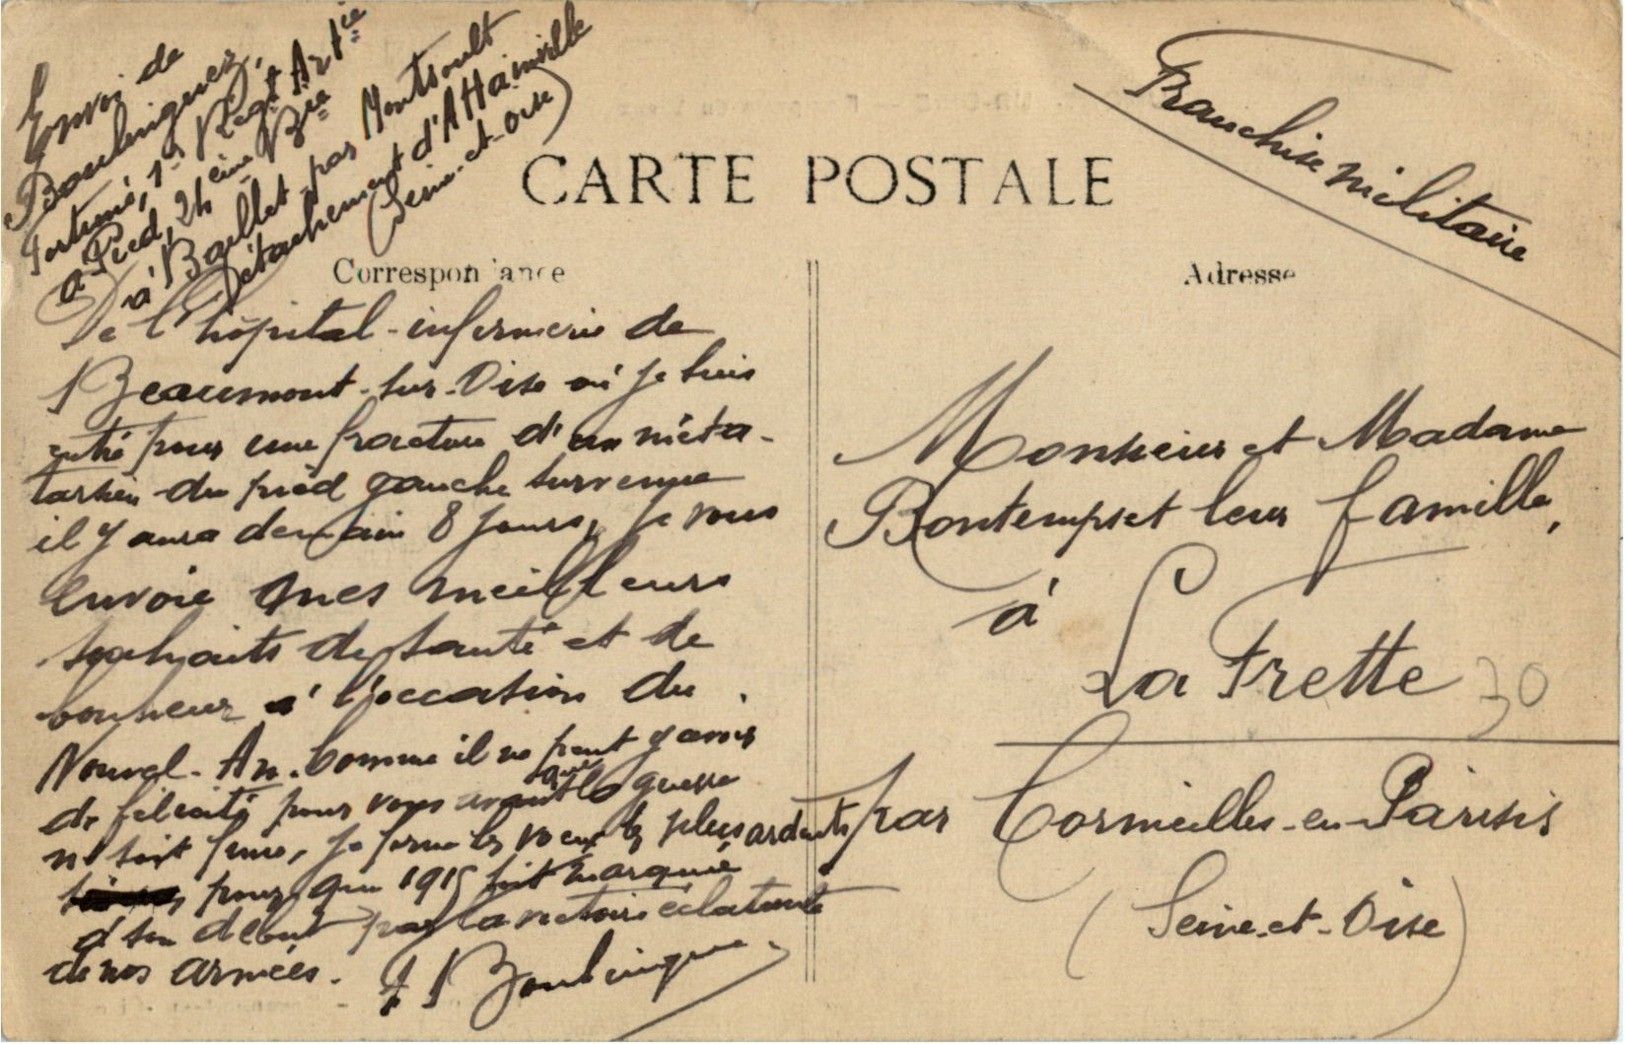 Envoi de
Boulinguez,
Fortuné, 1er Régt Artie
à Pied, 24ème Bie
à Baillet par Montsoult
Détachement d'Attainville
(Seine-et-Oise)
Franchise militaire
CARTE POSTALE
Correspondance
Adresse
De l'hôpital-infirmerie de
Beaumont-sur-Oise où je suis
entré pour une fracture d'un méta-
tarsien du pied gauche survenue
il y aura demain 8 jours, je vous
envoie mes meilleurs
souhaits de santé et de
bonheur à l'occasion du
Nouvel-An. Comme il ne peut y avoir
de félicité pour vous avant que la guerre
ne soit finie, je forme les vœux les plus ardents
pour que 1915 soit marquée
dès son début par la victoire éclatante
de nos armées. F Boulinguez
Monsieur et Madame
Bontemps et leur famille,
à
La Frette
30
par Cormeilles-en-Parisis
(Seine-et-Oise)